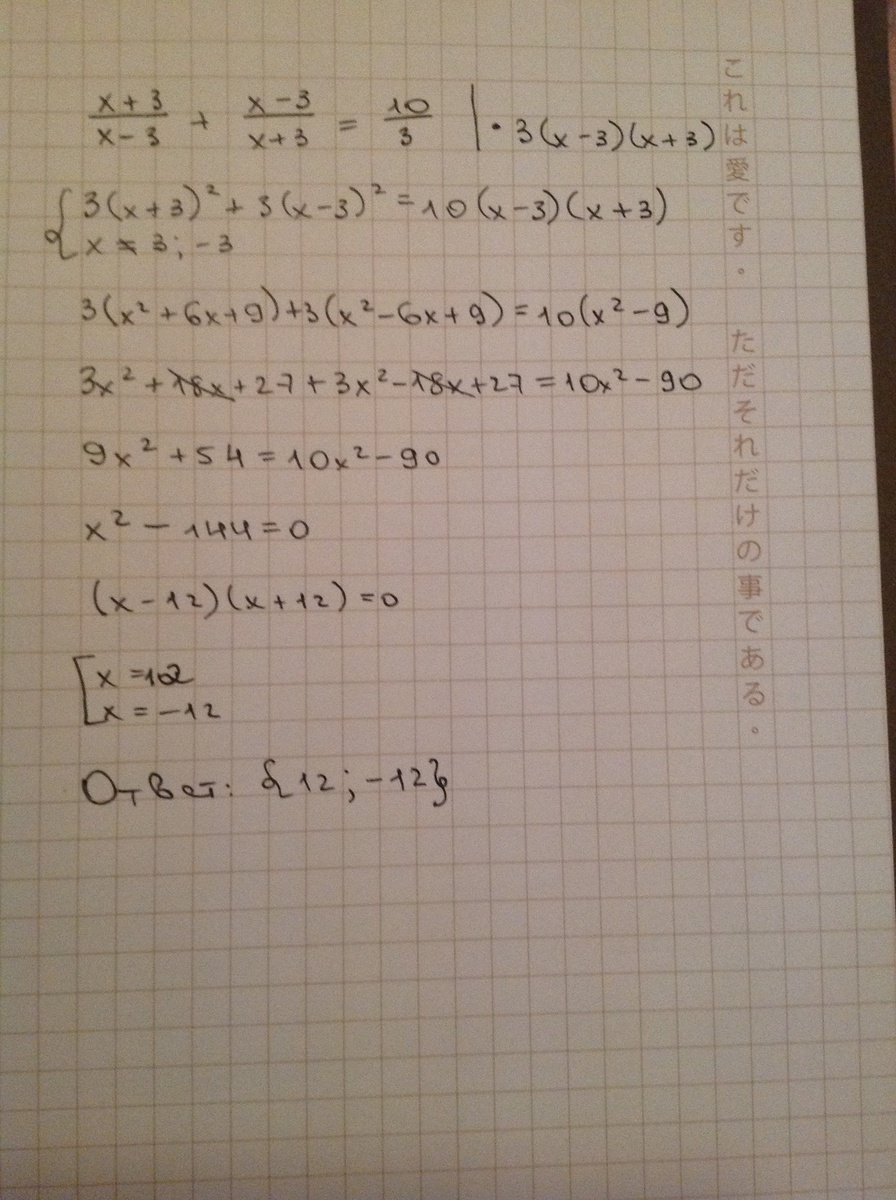 x+3/x-3 + x-3/x+3 = 10/3 | · 3(x-3)(x+3)
{ 3(x+3)² + 3(x-3)² = 10(x-3)(x+3)
x ≠ 3; -3
3(x²+6x+9)+3(x²-6x+9)=10(x²-9)
3x²+18x+27+3x²-18x+27=10x²-90
9x²+54=10x²-90
x²-144=0
(x-12)(x+12)=0
[ x=12
x=-12
Ответ: {12;-12}
これは愛です。ただそれだけの事である。